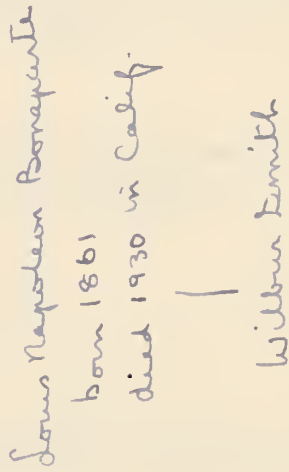 Louis Napoleon Bonaparte
born 1861
died 1930 in Calif.
Wilbur Smith